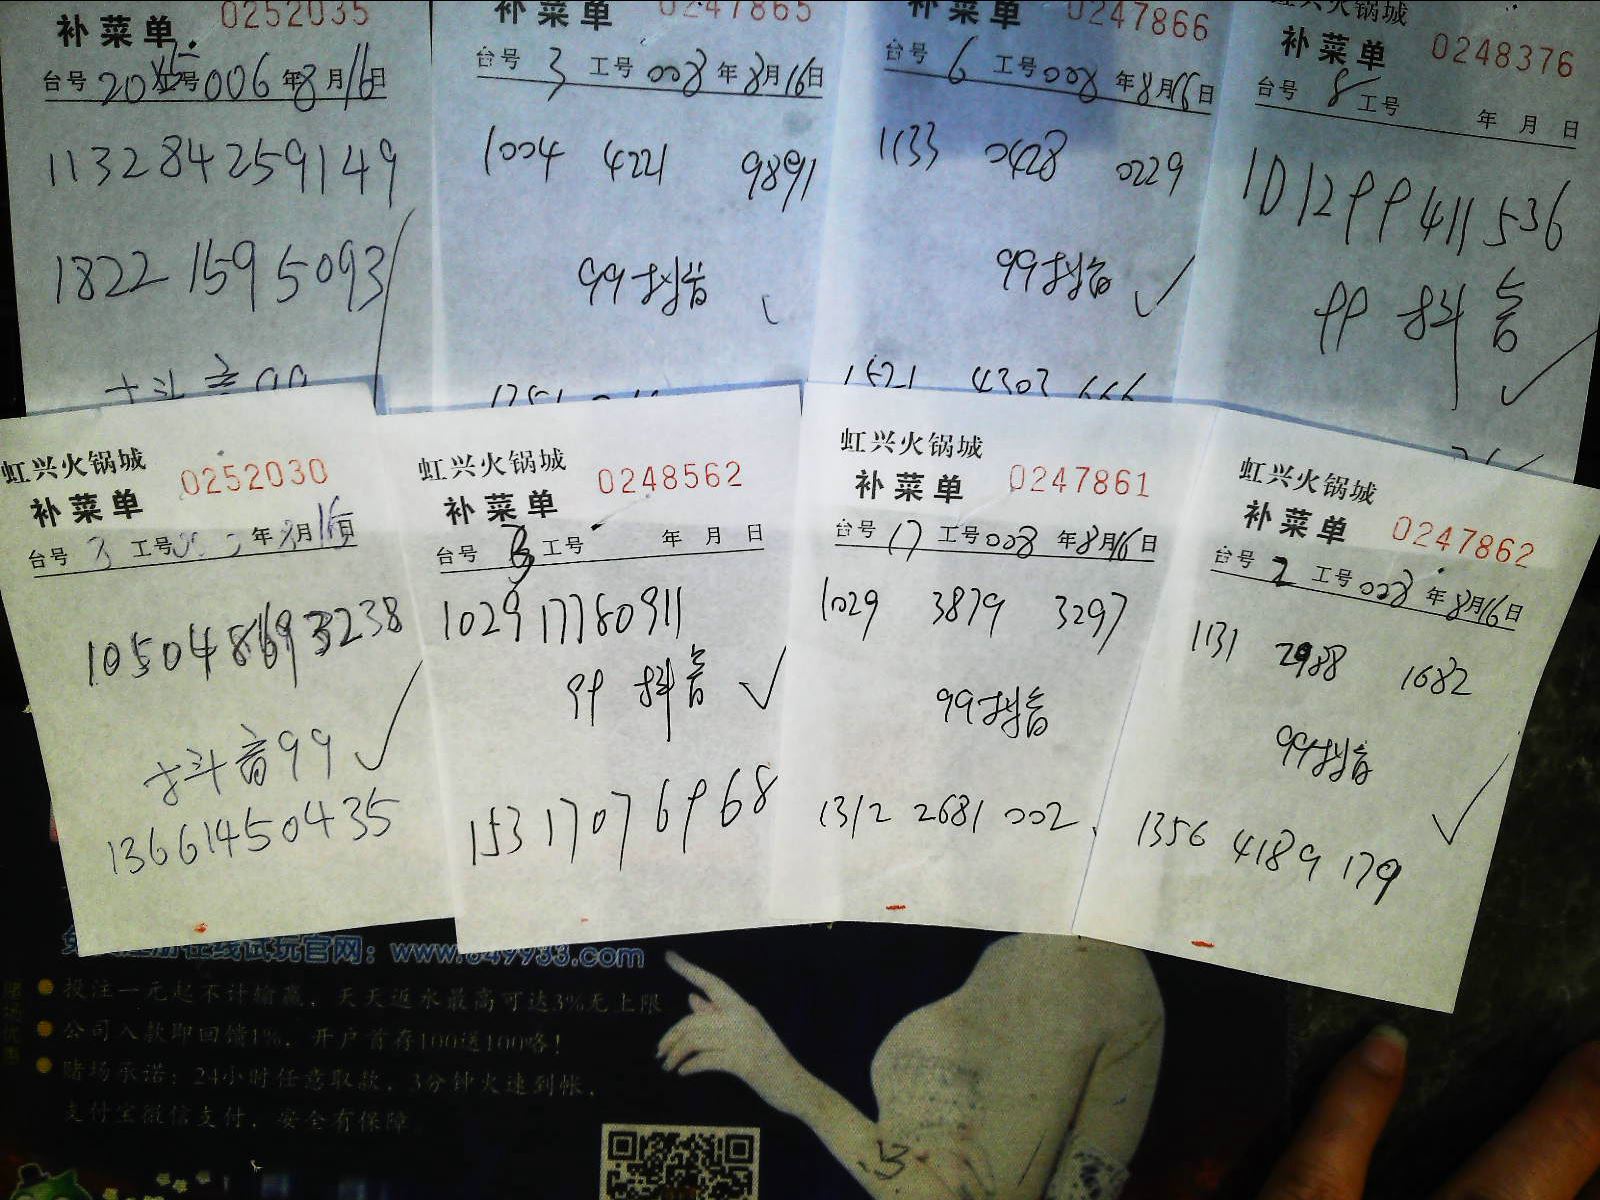 补菜单 0252035
台号 20 工号 006 年 8月16日
1132842591 49
1822 1595093
抖音99
0247865
台号 3 工号 008 年 8月16日
1004 4221 9891
99抖音
0247866
台号 6 工号 008 年 8月16日
1133 0428 0229
99抖音
1521 4303 666
虹兴火锅城
补菜单 0248376
台号 8 工号 年 月 日
101299411536
99 抖音
虹兴火锅城
补菜单 0252030
台号 3 工号 年8月16日
抖音99
13661450435
虹兴火锅城
补菜单 0248562
台号 工号 年 月 日
102917780911
99 抖音
15317076968
虹兴火锅城
补菜单 0247861
台号 17 工号 008 年8月16日
1029 3879 3297
99抖音
1312 2681 002
虹兴火锅城
补菜单 0247862
台号 2 工号 008 年8月16日
1131 2988 1682
99抖音
1356 4189 179
在线试玩官网：www.849933.com
投注一元起不计输赢，天天返水最高可达3%无上限
公司入款即回馈1%，开户首存100送100咯！
赌场承诺：24小时任意取款，3分钟火速到帐，
支付宝微信支付，安全有保障